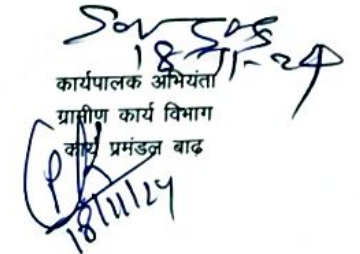 18-11-24
कार्यपालक अभियंता
ग्रामीण कार्य विभाग
कार्य प्रमंडल बाढ़
18/11/24